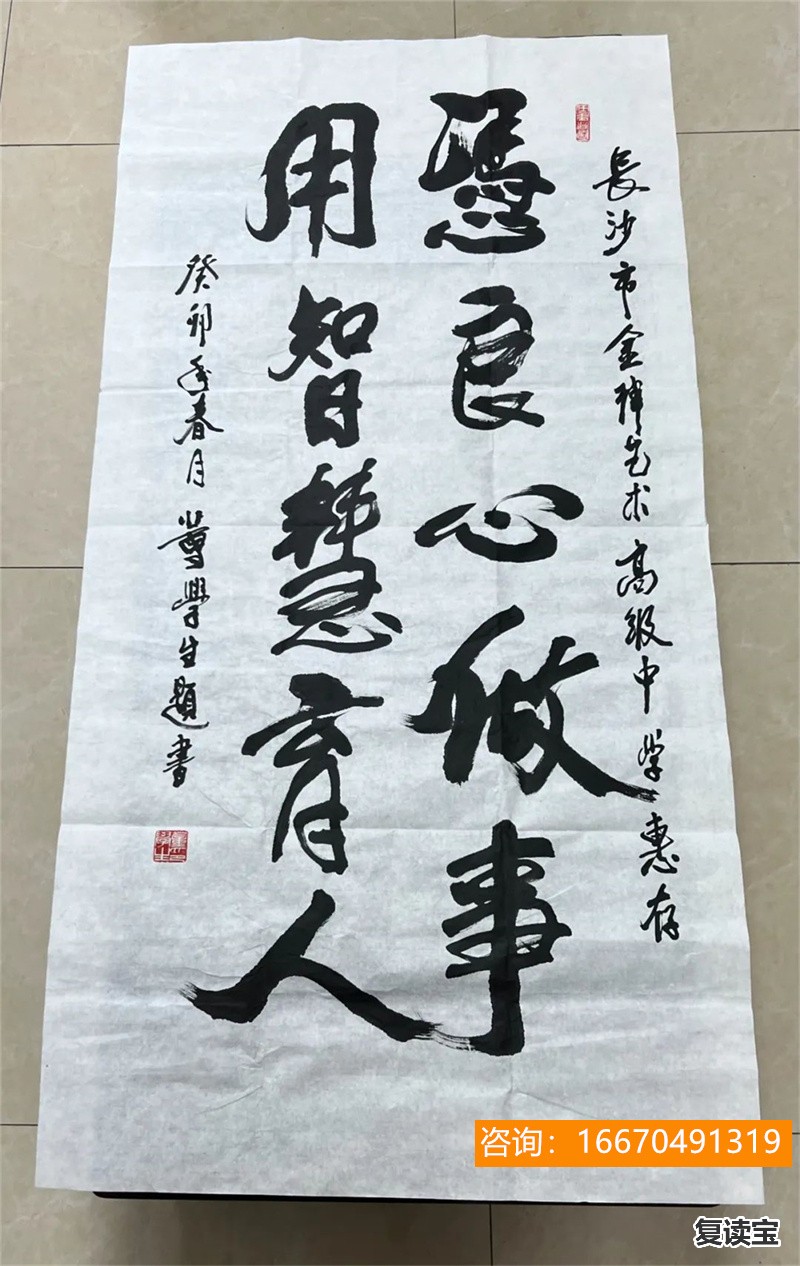 長沙市金禅艺术高级中学惠存
憑良心做事
用智慧育人
癸卯年春月 学生題書
咨询：16670491319
复读宝